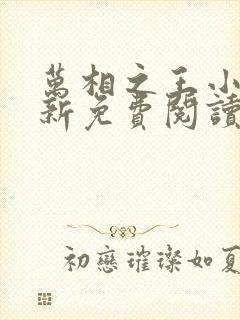 萬相之王小
新免費閱讀
初戀璀璨如夏